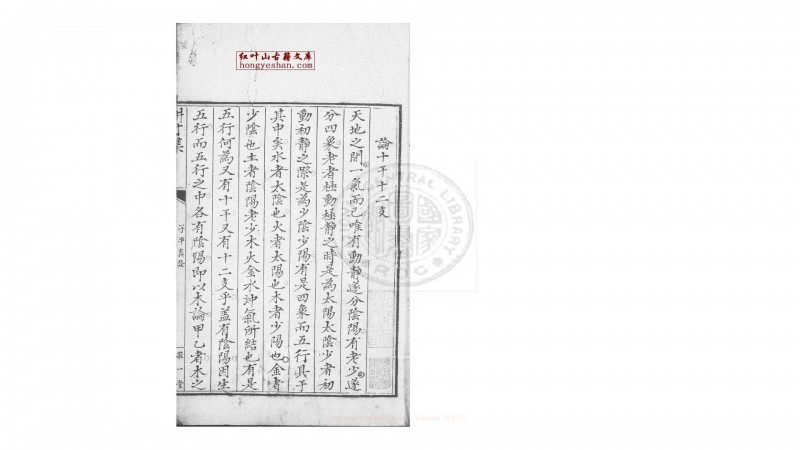 红叶山古籍文库
hongyeshan.com
論十干十二支
天地之間一氣而已唯有動静遂分陰陽有老少遂
分四象老者極動極静之時是為太陽太陰少者初
動初静之際是為少陰少陽有是四象而五行具于
其中矣水者太陰也火者太陽也木者少陽也金者
少陰也土者陰陽老少木火金水沖氣所結也有是
五行何為又有十干又有十二支乎盖有陰陽因生
五行而五行之中各有陰陽即以木論甲乙者木之